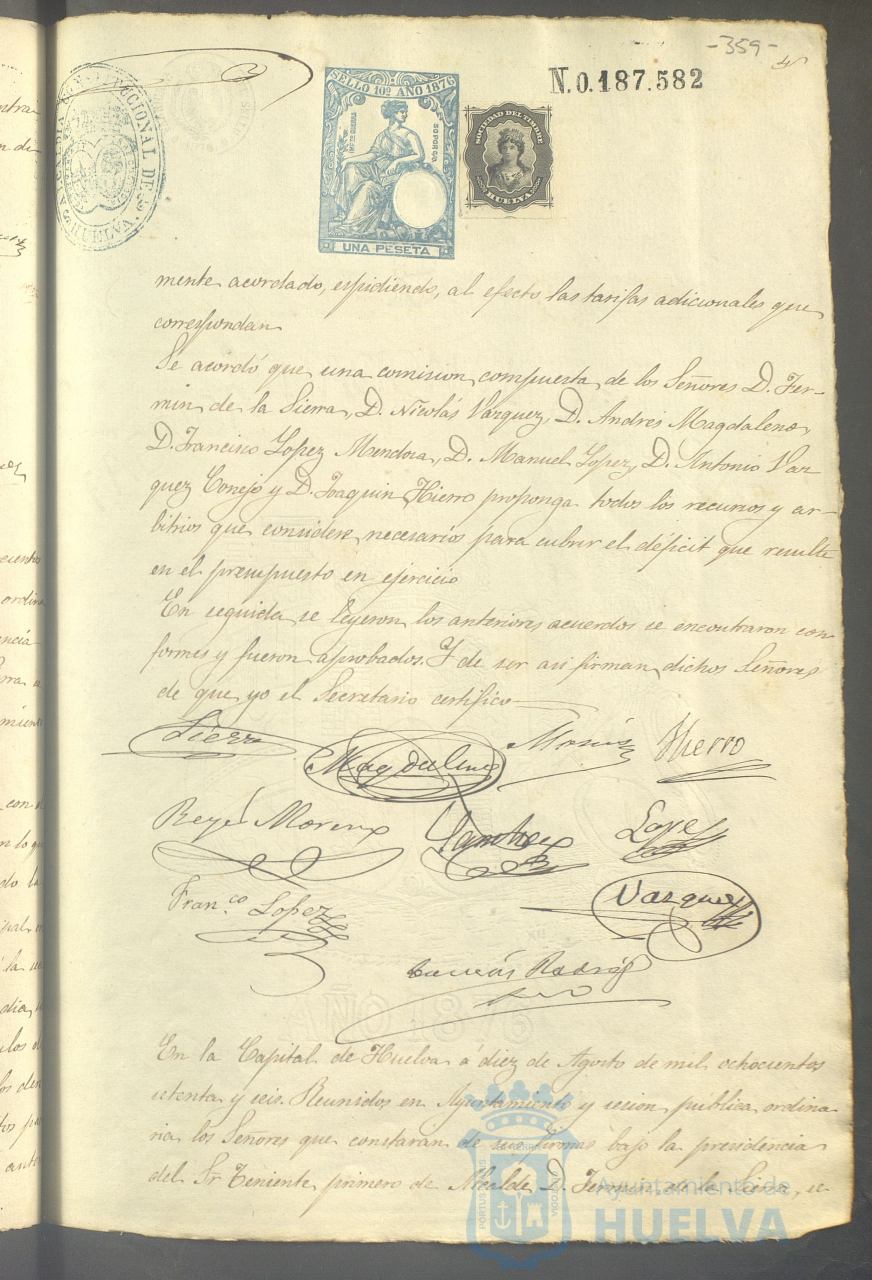 -359-
N.0.187.582
SELLO 10º AÑO 1876
UNA PESETA
SOCIEDAD DEL TIMBRE
HUELVA
CONSTITUCIONAL DE
HUELVA
mente acordado, espidiendo, al efecto las tarifas adicionales que
correspondan
Se acordó que una comision compuesta de los Señores D. Fer-
min de la Sierra, D. Nicolás Vazquez, D. Andres Magdalena,
D. Francisco Lopez Mendoza, D. Manuel Lopez, D. Antonio Vaz
quez Conejo y D. Joaquin Hierro proponga todos los recursos y ar-
bitrios que considere necesarios para cubrir el déficit que resulte
en el presupuesto en ejercicio
En seguida se leyeron los anteriores acuerdos se encontraron con
formes y fueron aprobados. Y de ser asi firman dichos Señores
de que yo el Secretario certifico
Sierra
Magdalena
Hierro
Moreno
Lopez
Franco Lopez
Vazquez
Tomás Rodrig
AÑO 1876
En la Capital de Huelva á diez de Agosto de mil ochocientos
setenta y seis. Reunidos en Ayuntamiento y sesion publica ordina
ria los Señores que constarán de sus firmas bajo la presidencia
del Sr. Teniente primero de Alcalde D. Fermin de la Sierra, se
Ayuntamiento de
HUELVA